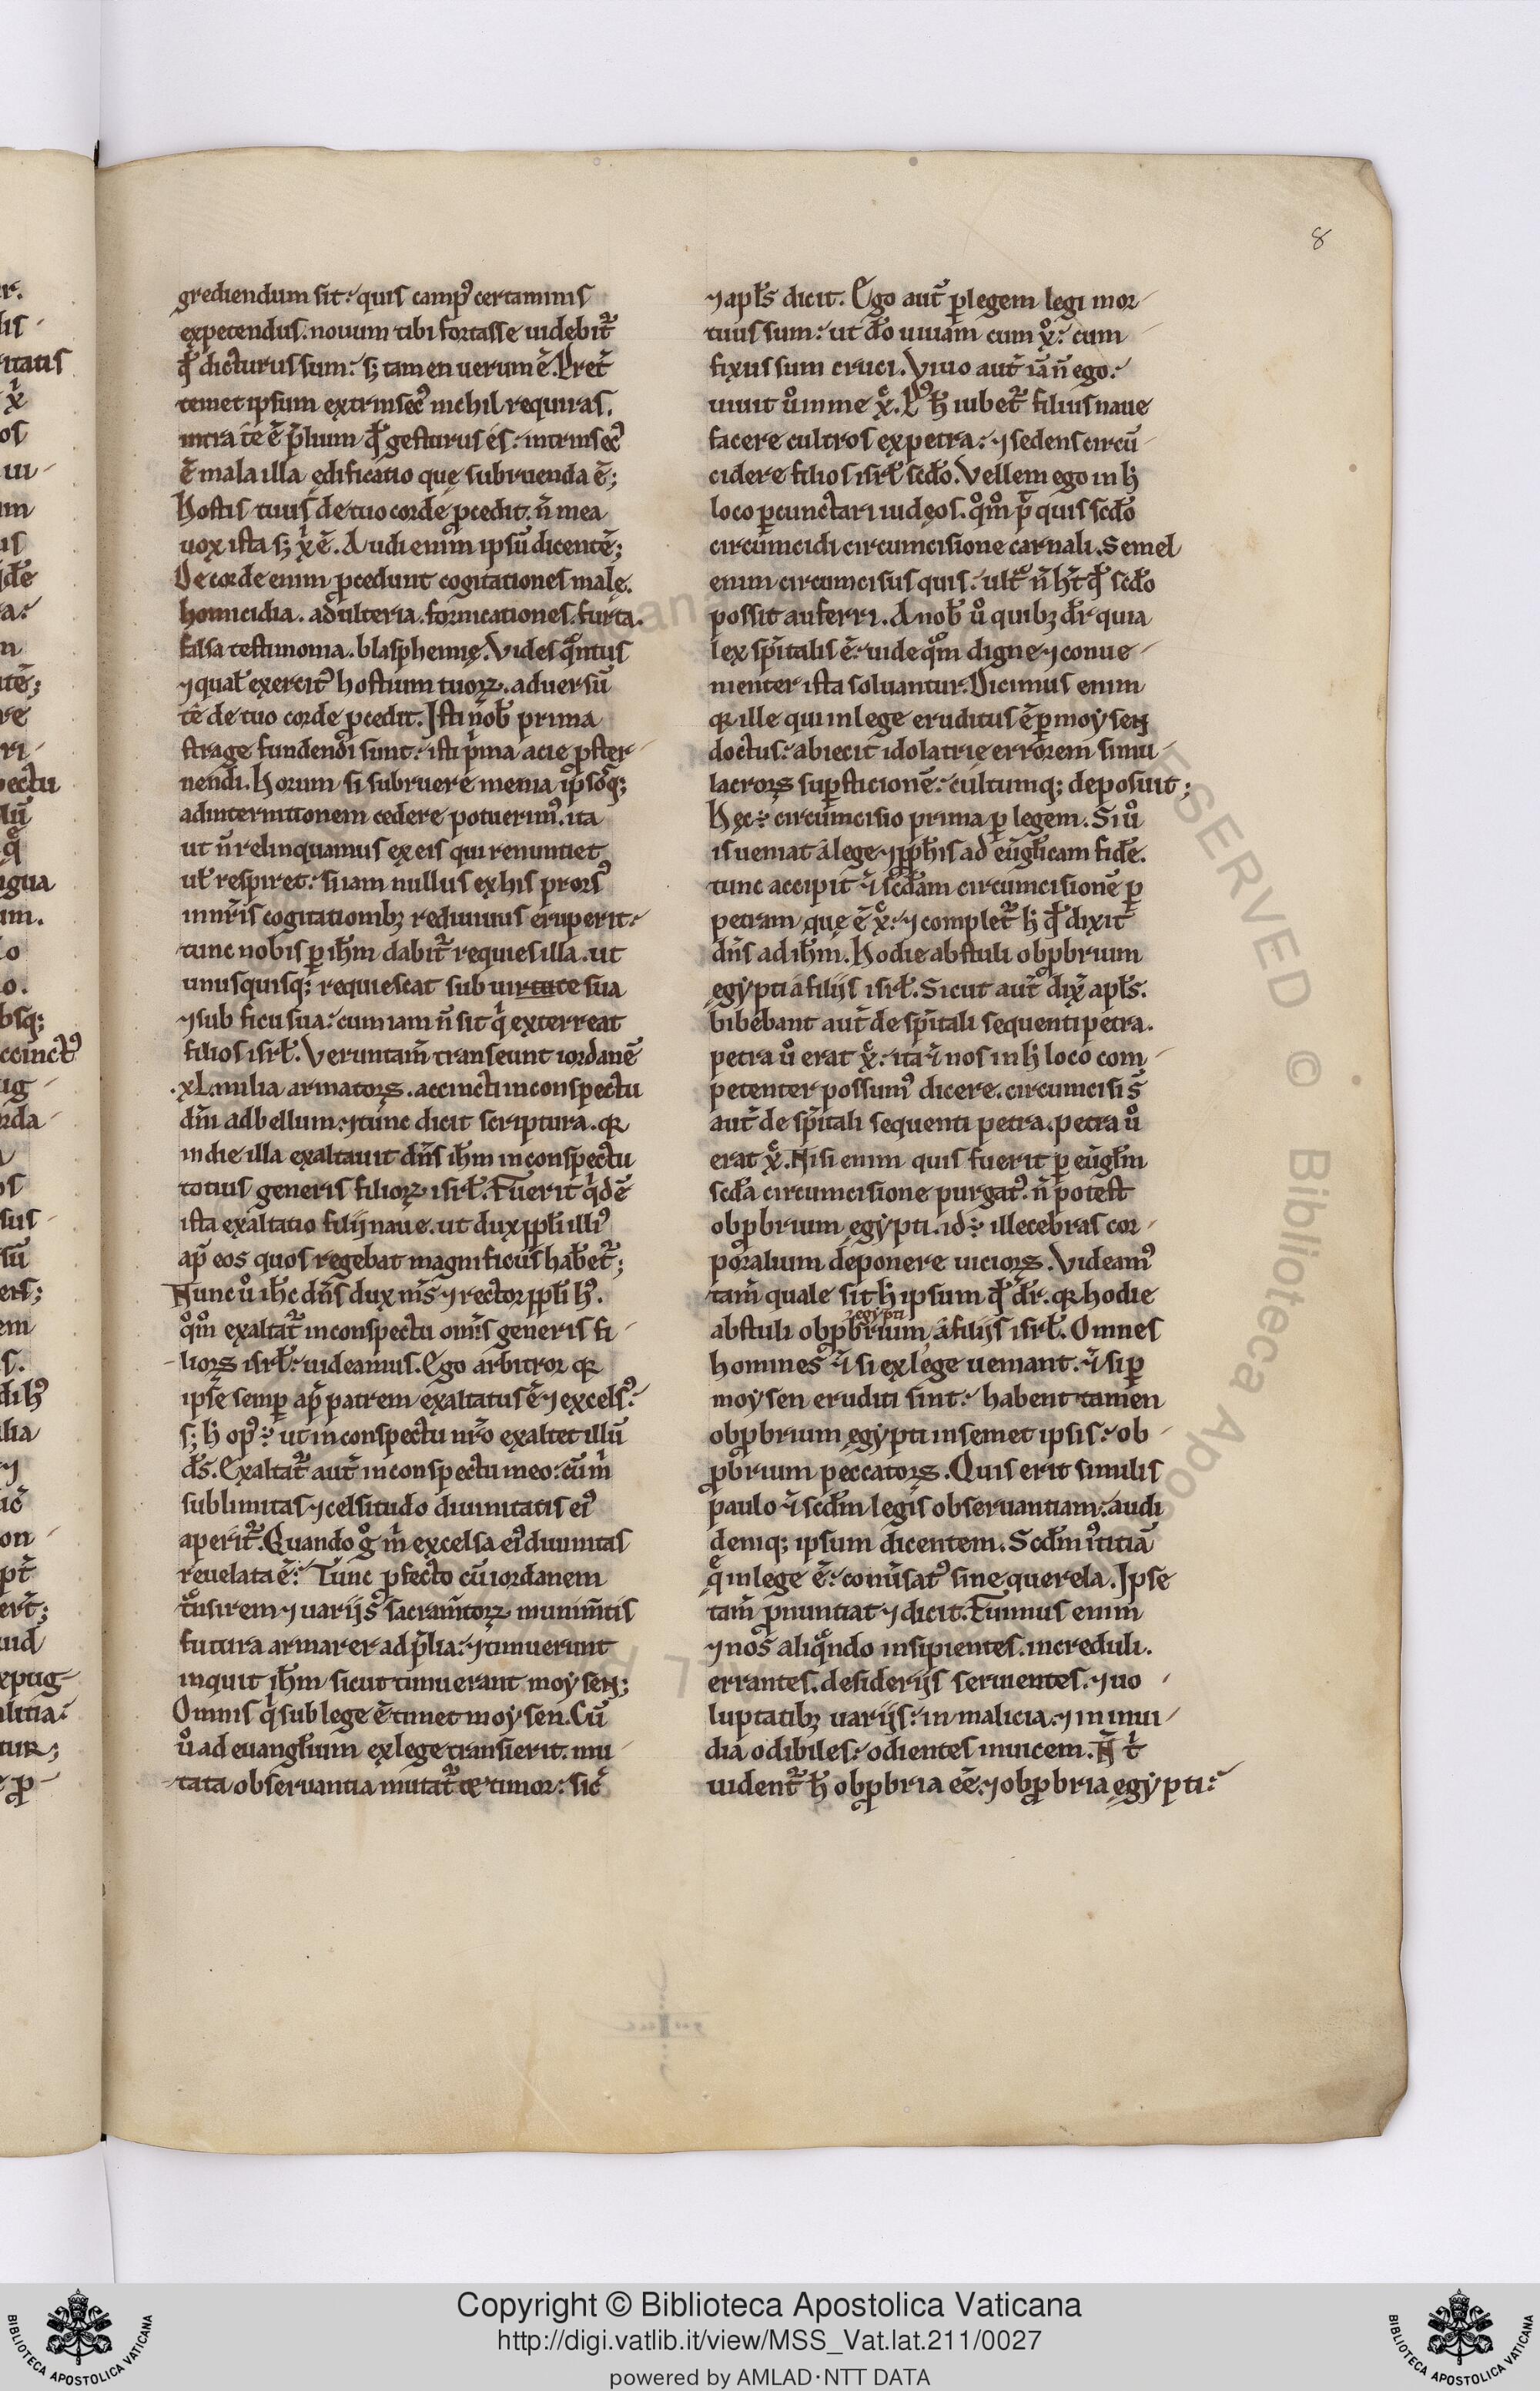 8
grediendum sit. quis camp᷒ certaminis
expetendus. nouum tibi fortasse uidebit᷑
qđ dicturus sum. sꝫ tamen uerum ē. Pret̄
temet ipsum extrinsec᷒ nichil requiras.
intra te ē p̄lium qđ gesturus es. intrinsec᷒
ē mala illa ędificatio quę subruenda ē;
Hostis tuus de tuo corde ꝓcedit. n̄ mea
uox ista sꝫ xp̄i ē. Audi enim ipsū dicentē;
De corde enim ꝓcedunt cogitationes malę.
homicidia. adulteria. fornicationes. furta.
falsa testimonia. blasphemię. Vides qᵃntus
⁊ qual̄ exercit᷒ hostium tuoꝝ. aduersū
te de tuo corde ꝓcedit. Isti nob̄ prima
strage fundendi sunt. isti p̄ma acie ꝓster-
nendi. Horum si subruere menia ip̄sosq;
ad internitionem cedere potuerim᷒. ita
ut n̄ relinquamus ex eis qui renuntiet
ul̄ respiret. si iam nullus ex his prors᷒
in nr̄is cogitationibꝫ rediuiuus eruperit.
tunc nobis ꝑ ih̄m dabit᷑ requies illa. ut
unusquisq; requiescat sub uirtute sua
⁊ sub ficu sua. cum iam n̄ sit qⁱ exterreat
filios isrl̄. Veruntam̄ transeunt iordanē
.xl. milia armatoꝝ. accincti in conspectu
dn̄i ad bellum. ⁊ tunc dicit scriptura. qꝛ
in die illa exaltauit dn̄s ih̄m in conspectu
totius generis filioꝝ isrl̄. Fuerit qⁱdē
ista exaltatio filii naue. ut dux ppl̄i illi᷒
ap̄ eos quos regebat magnificus habet᷑;
Nunc ů ih̄c dn̄s dux nr̄s ⁊ rector ppl̄i h᷒.
qᵒm̊ exaltat᷑ in conspectu om̄is generis fi-
lioꝝ isrl̄. uideamus. Ego arbitror qꝛ
ipse semꝑ ap̄ patrem exaltatus ē ⁊ excels᷒.
sꝫ h̄ op᷒ ÷ ut in conspectu nr̄o exaltet illū
ds̄. Exaltat᷑ aut̄ in conspectu meo. cū mⁱ
sublimitas ⁊ celsitudo diuinitatis ei᷒
aperit᷑. Quando gᵒ mⁱ excelsa ei᷒ diuinitas
reuelata ē. Tunc ꝓfecto cū iordanem
tᵃnsirem ⁊ uarijs sacram̄toꝝ munim̄tis
futura armarer ad p̄lia. ⁊ timuerunt
inquit ih̄m sicut timuerant moẏsen;
Omnis qⁱ sub lege ē timet moẏsen. Cū
ů ad euangl̄ium ex lege transierit. mu-
tata obseruantia mutat᷑ ⁊ timor. sic̄
⁊ apl̄s dicit. Ego aut̄ ꝑ legem legi mor-
tuus sum. ut do uiuam cum xᵒ. cum
fixus sum cruci. Viuo aut̄ iā n̄ ego.
uiuit ů in me xᶜ. P᷒ h̄ iubet᷑ filius naue
facere cultros ex petra. ⁊ sedens circū-
cidere filios isrl̄ scdo. Vellem ego in h̄
loco ꝑcunctari iudęos. qᵒm̊ p̄ quis scdo
circumcidi circumcisione carnali. Semel
enim circumcisus quis. ult̄ n̄ h̄t qđ scdo
possit auferri. A nob̄ ů quibꝫ dr̄ quia
lex sp̄italis ē. uide qᵒm digne ⁊ conue-
nienter ista soluantur. Dicimus enim
qꝛ ille qui in lege eruditus ē ꝑ moẏsen
doctus. abiecit idolatrię errorem simu-
lacroꝝ suꝑsticionē. cultumq; deposuit;
Hęc ÷ circumcisio prima ꝑ legem. Si ů
is ueniat a lege ⁊ ꝓph̄is ad eūgl̄icam fidē.
tunc accipit ⁊ scđam circumcisionē ꝑ
petram quę ē xᶜ. ⁊ complet᷑ h̄ qđ dixit
dn̄s ad ih̄m. Hodie abstuli obꝓbrium
egẏpti a filijs isrl̄. Sicut aut̄ dix̄ apl̄s.
bibebant aut̄ de sp̄itali sequenti petra.
petra ů erat xᶜ. ita ⁊ nos in h̄ loco com-
petenter possum᷒ dicere. circumcisi s̄
aut̄ de sp̄itali sequenti petra. petra ů
erat xᶜ. Nisi enim quis fuerit ꝑ eūgl̄m
scđa circumcisione purgat᷒. n̄ potest
obꝓbrium egẏpti. id ÷ illecebras cor-
poralium deponere uicioꝝ. Videam᷒
tam̄ quale sit h̄ ipsum qđ dr̄. qꝛ hodie
egẏpti
abstuli obꝓbrium a filijs isrl̄. Omnes
homines ⁊ si ex lege ueniant. ⁊ si ꝑ
moẏsen eruditi sint. habent tamen
obꝓbrium ęgẏpti in semet ipsis. ob-
ꝓbrium peccatoꝝ. Quis erit similis
paulo ⁊ scdm̄ legis obseruantiam. audi
deniq; ipsum dicentem. Scdm̄ i᷒titiā
qᵉ in lege ē. conūsat᷒ sine querela. Ipse
tam̄ ꝓnuntiat ⁊ dicit. Fuimus enim
⁊ nos aliqᵃndo insipientes. increduli.
errantes. desiderijs seruientes. ⁊ uo-
luptatibꝫ uarijs. in malicia. ⁊ in inui-
dia odibiles. odientes inuicem. N̄ tⁱ
uident᷑ h̄ obꝓbria eē. ⁊ obꝓbria ęgẏpti.
Copyright © Biblioteca Apostolica Vaticana
http://digi.vatlib.it/view/MSS_Vat.lat.211/0027
powered by AMLAD·NTT DATA
BIBLIOTECA APOSTOLICA VATICANA
BIBLIOTECA APOSTOLICA VATICANA